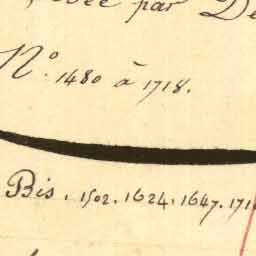 par De
N°. 1480 à 1718.
Bis. 1502. 1624. 1647. 171